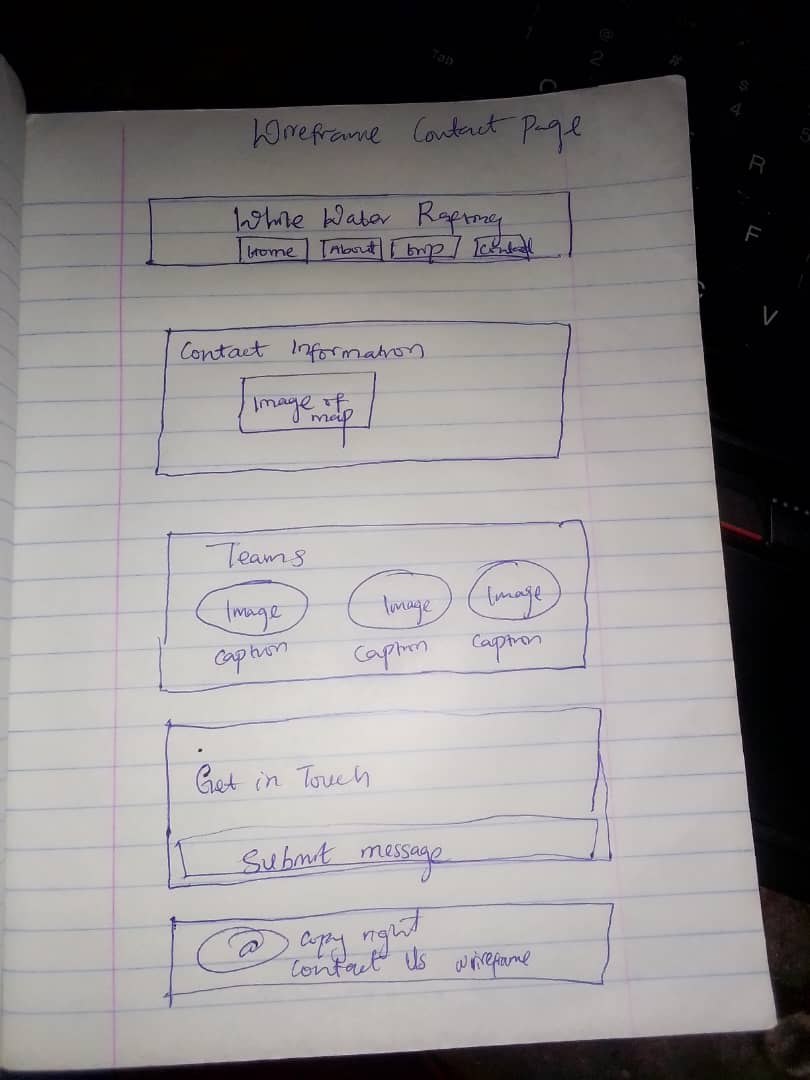 Wireframe Contact Page
White Water Rafting
Home About trip Contact
Contact Information
Image of
map
Teams
Image Image Image
caption caption caption
Get in Touch
Submit message
@ copy right
Contact Us wireframe
Tab
@
2
#
$
4
R
F
V